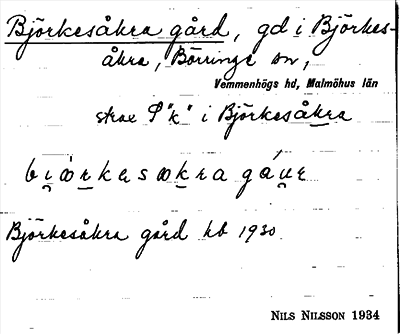 Björkesåkra gård, gd i Björkes-
åkra, Börringe sn,
Vemmenhögs hd, Malmöhus län
i Björkesåkra
Björkesåkra gård kb 1930
NILS NILSSON 1934